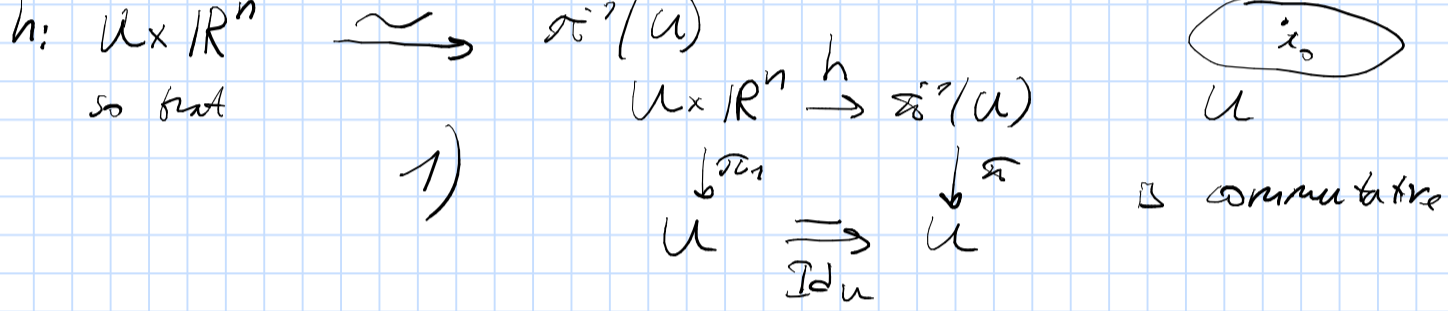 h: U × ℝⁿ ⥲ π⁻¹(U)
so that
U × ℝⁿ →ʰ π⁻¹(U)
1) ↓π₁ ↓π is commutative
U → U
Id_U
x₀
U